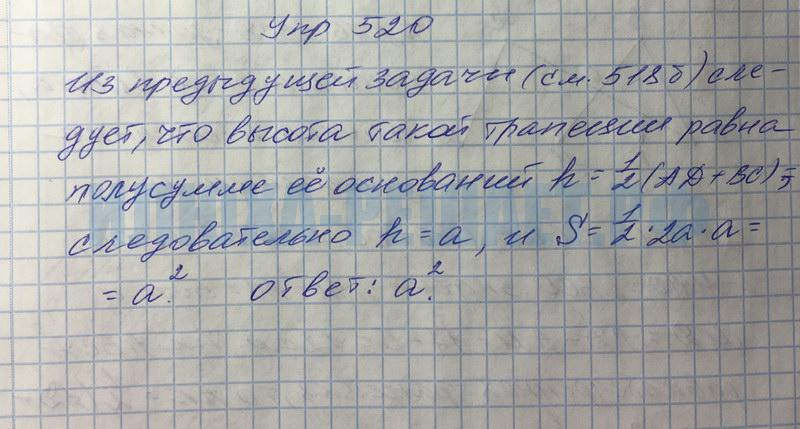 Упр 520
Из предыдущей задачи (см. 518б) сле-
дует, что высота такой трапеции равна
полусумме её оснований h = 1/2 (AD+BC) ⇒
следовательно h = a, и S = 1/2 · 2a · a =
= a². ответ: a².